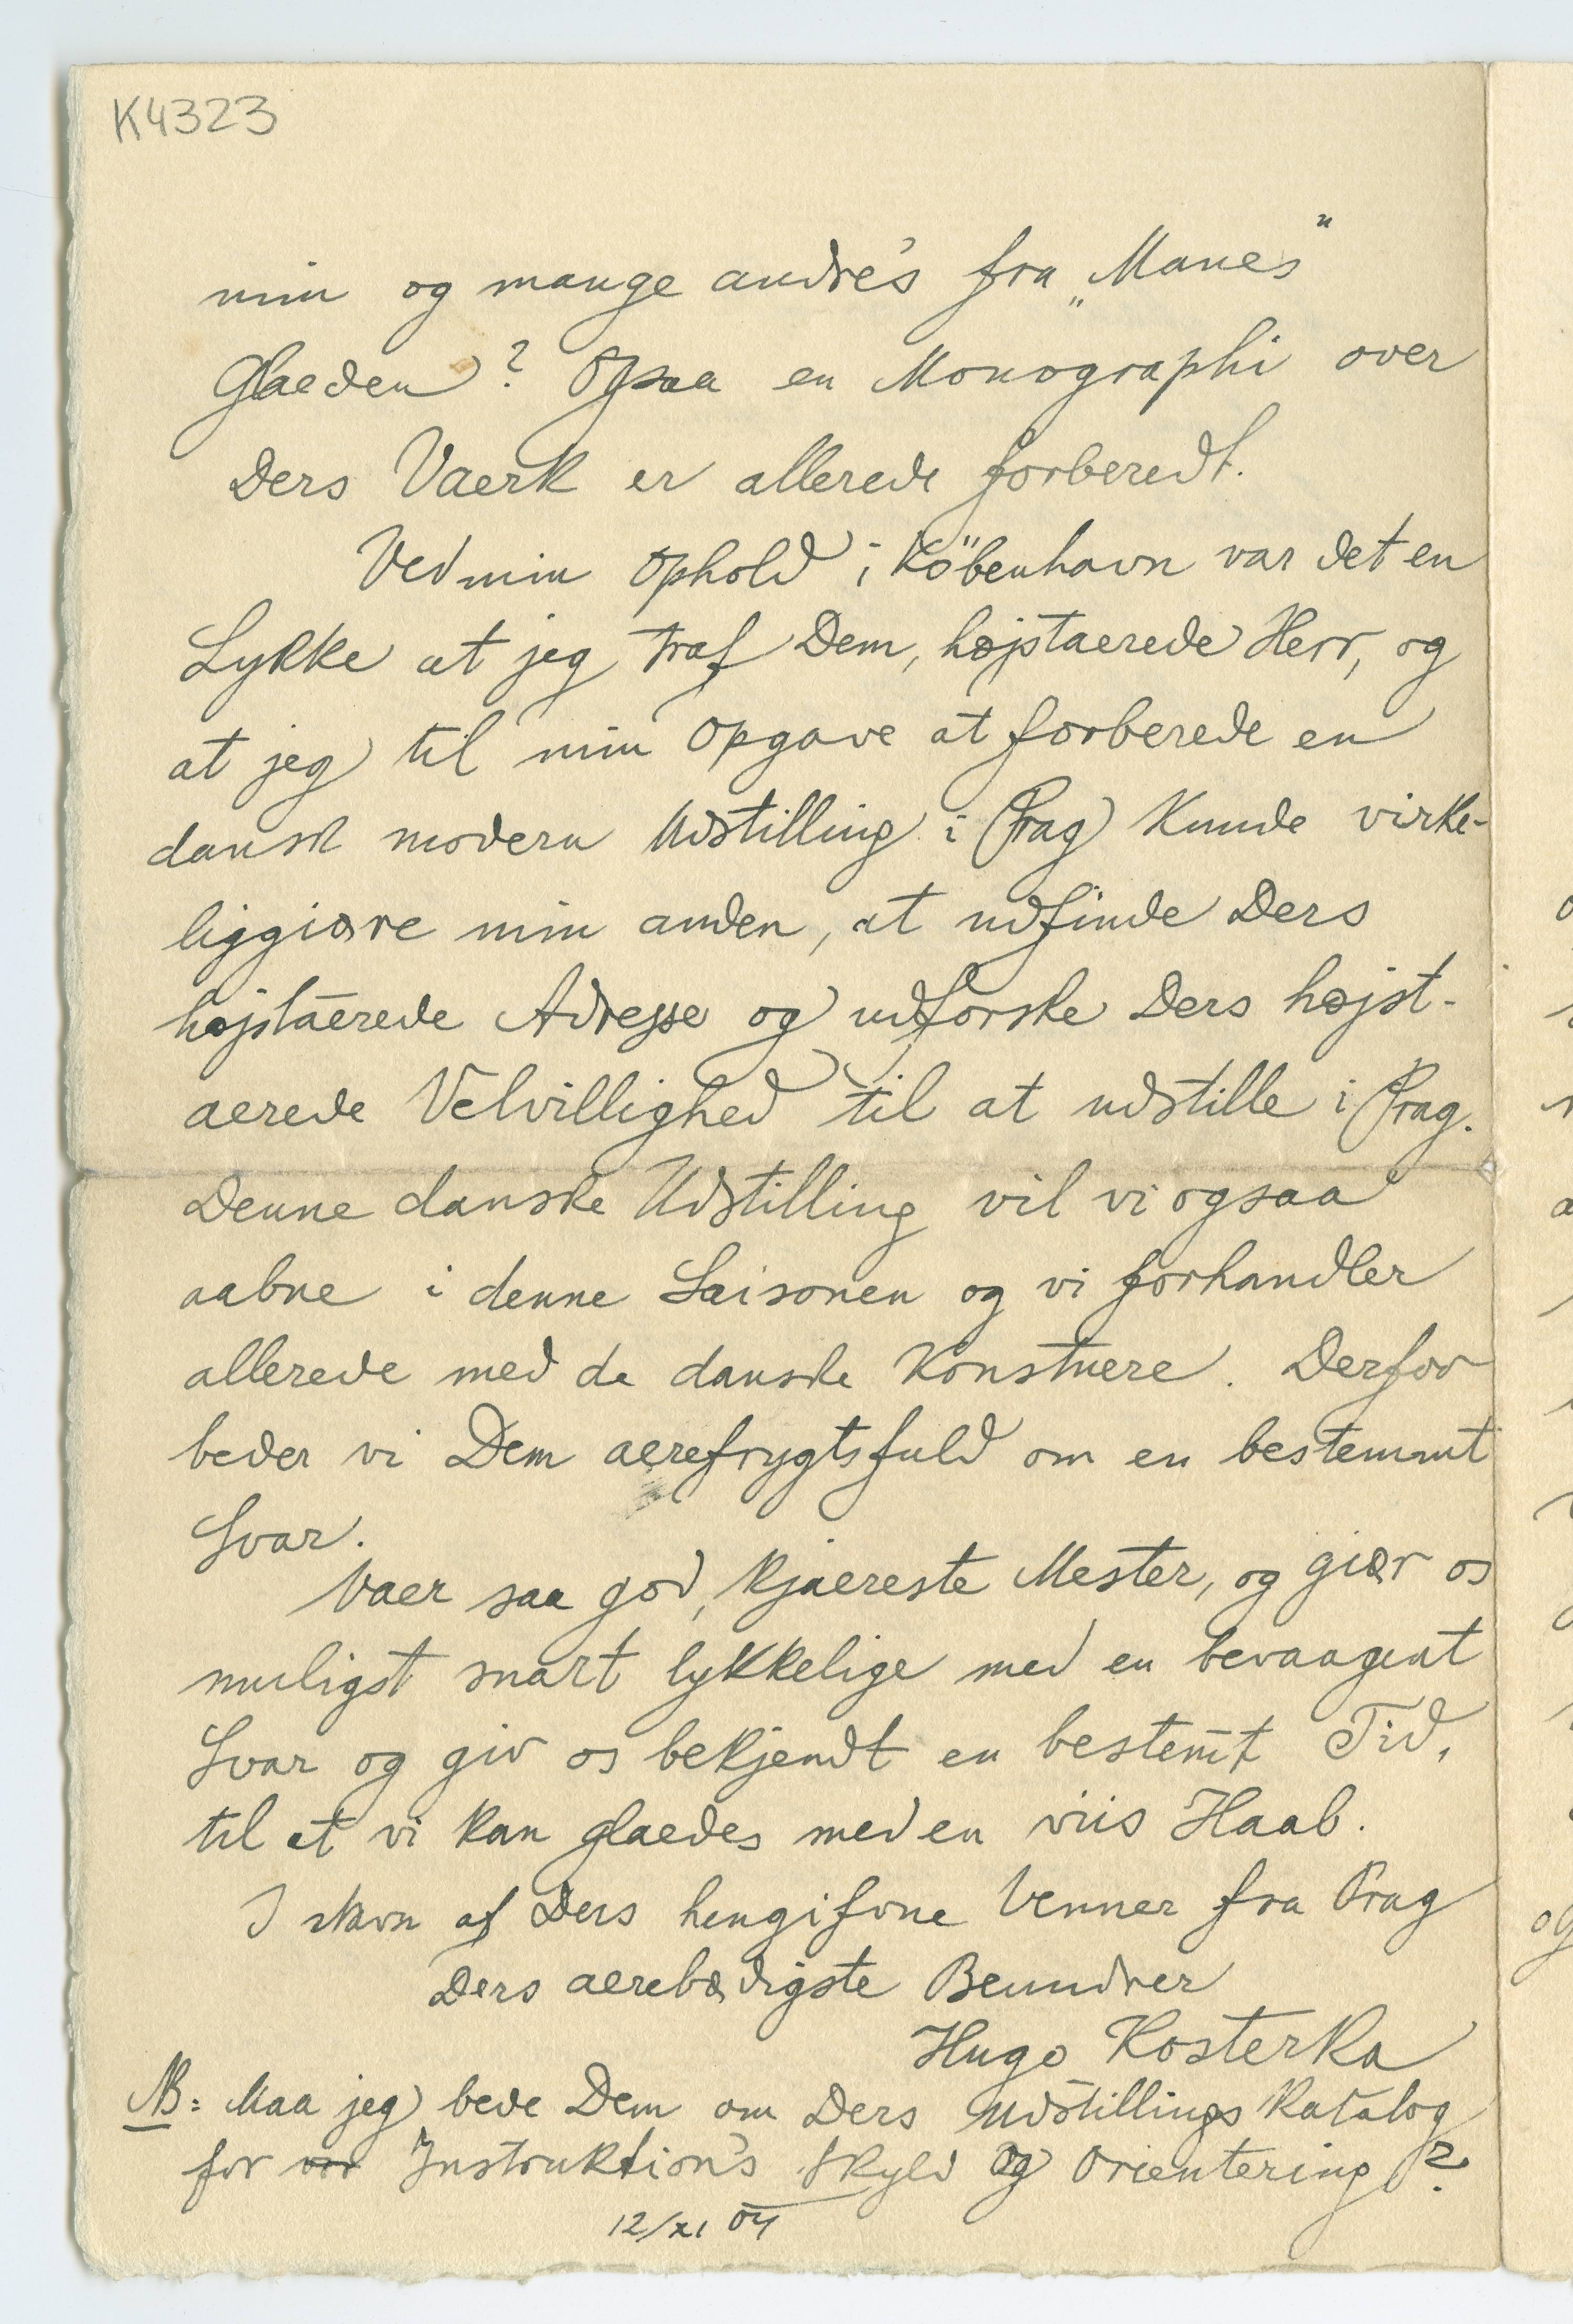 K4323
min og mange andre's fra „Manes"
Glaeden? Ogsaa en Monographi over
Ders Vaerk er allerede forberedt.
Ved min Ophold i Köbenhavn var det en
Lykke at jeg traf Dem, højstaerede Herr, og
at jeg til min Opgave at forberede en
dansk modern Udstilling i Prag kunde virke-
liggiøre min anden, at udfinde Ders
højstaerede Adresse og udforske Ders højst-
aerede Velvillighed til at udstille i Prag.
Denne danske Udstilling vil vi ogsaa
aabne i denne Saisonen og vi forhandler
allerede med de danske Konstnere. Derfor
beder vi Dem aerefrygtsfuld om en bestemmt
Svar.
Vaer saa god, kjaereste Mester, og giør os
muligst snart lykkelige med en bevaagent
Svar og giv os bekjendt en bestem̄t Tid,
til at vi kan glaedes med en viis Haab.
I Navn af Ders hengifvne Venner fra Prag
Ders aerebødigste Beundrer
Hugo Kosterka
NB: Maa jeg bede Dem om Ders Udstillings Katalog
for vor Instruktion's Skyld og Orientering?
12/XI 04